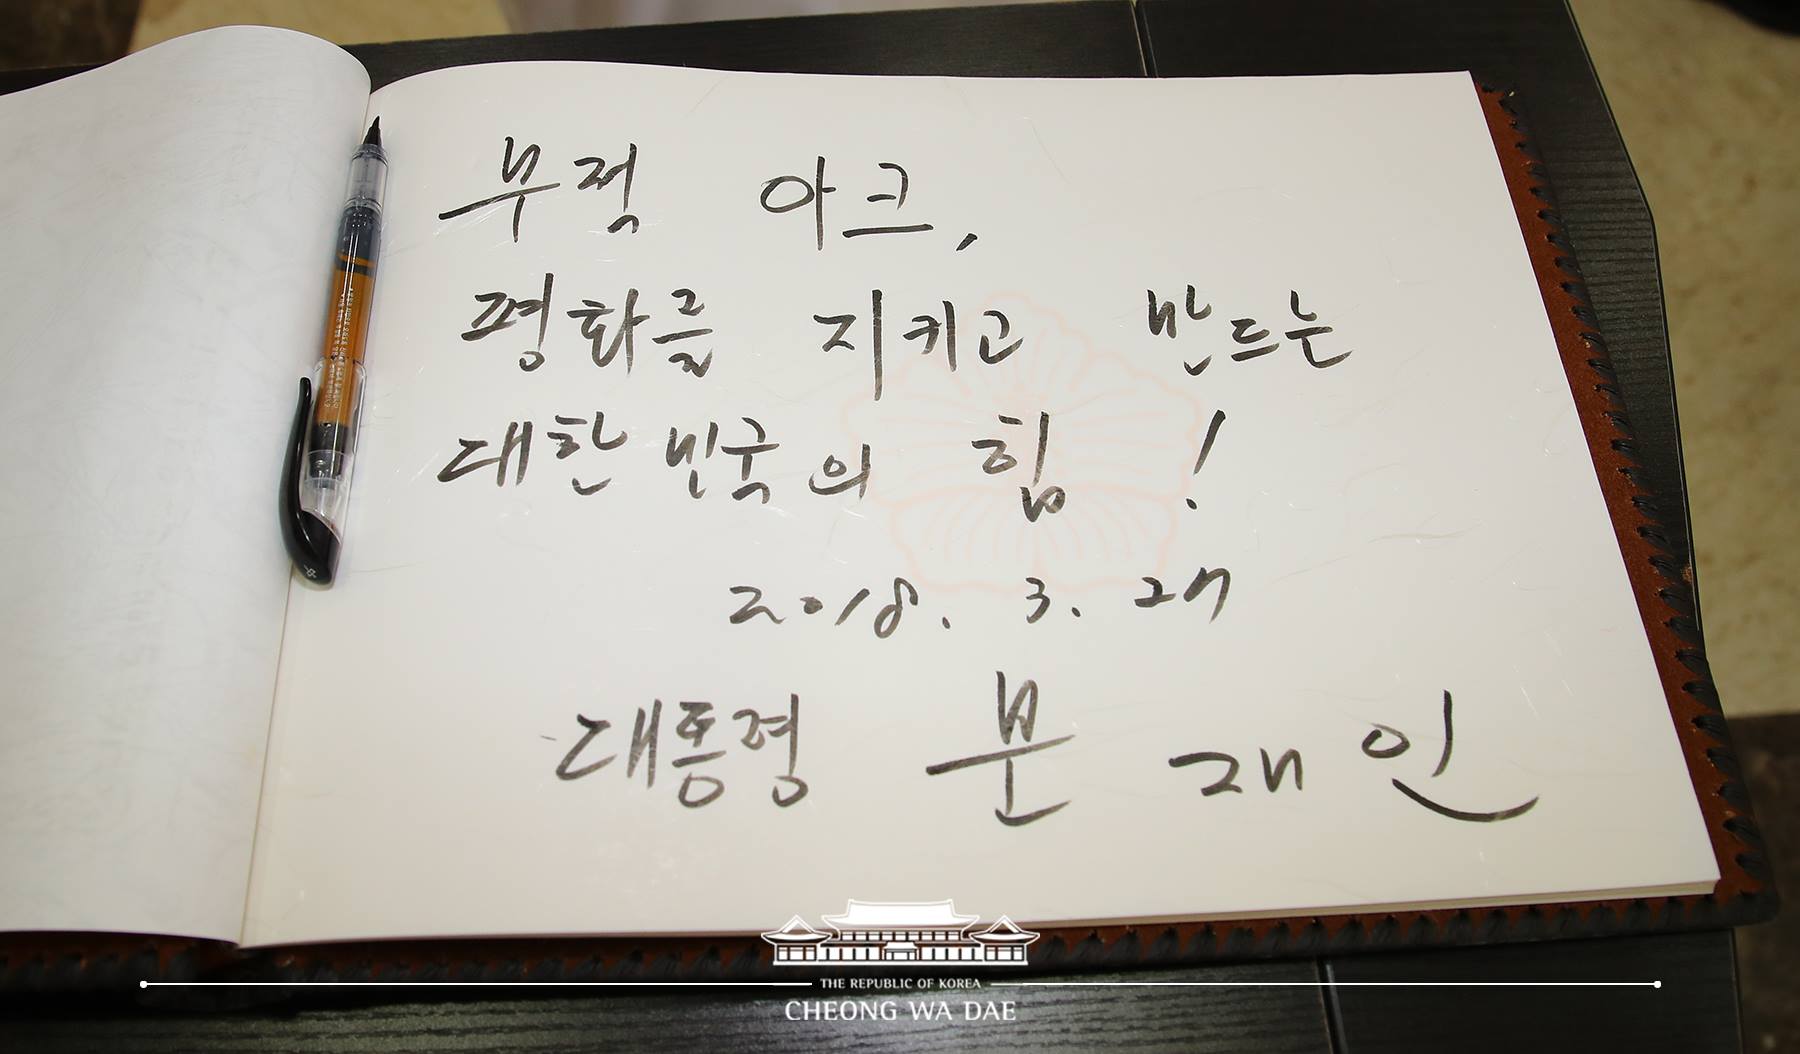 무적 아크,
평화를 지키고 만드는
대한민국의 힘!
2018. 3. 27
대통령 문 재 인
THE REPUBLIC OF KOREA
CHEONG WA DAE